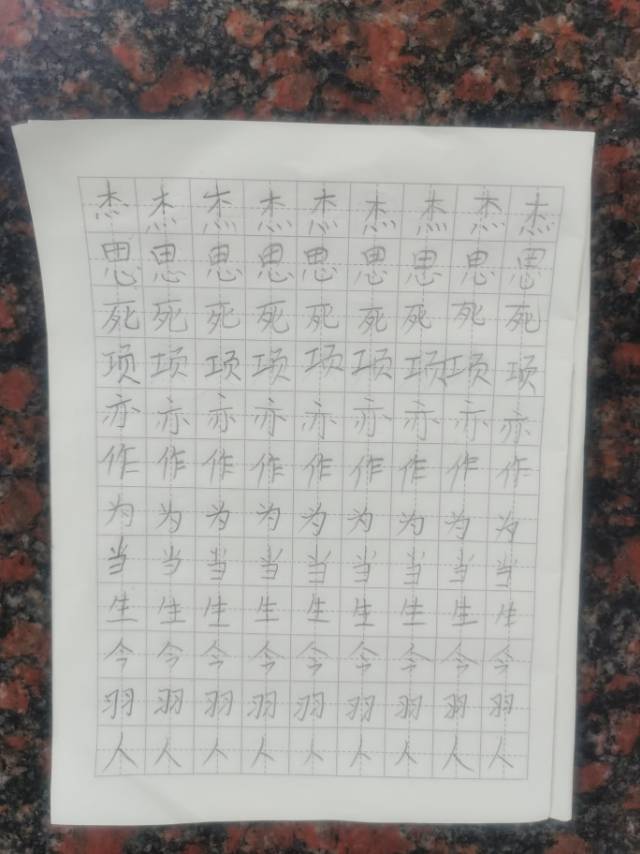 杰杰杰杰杰杰杰杰杰
思思思思思思思思思
死死死死死死死死死
项项项项项项项项项
亦亦亦亦亦亦亦亦亦
作作作作作作作作作
为为为为为为为为为
当当当当当当当当当
生生生生生生生生生
今今今今今今今今今
羽羽羽羽羽羽羽羽羽
人人人人人人人人人